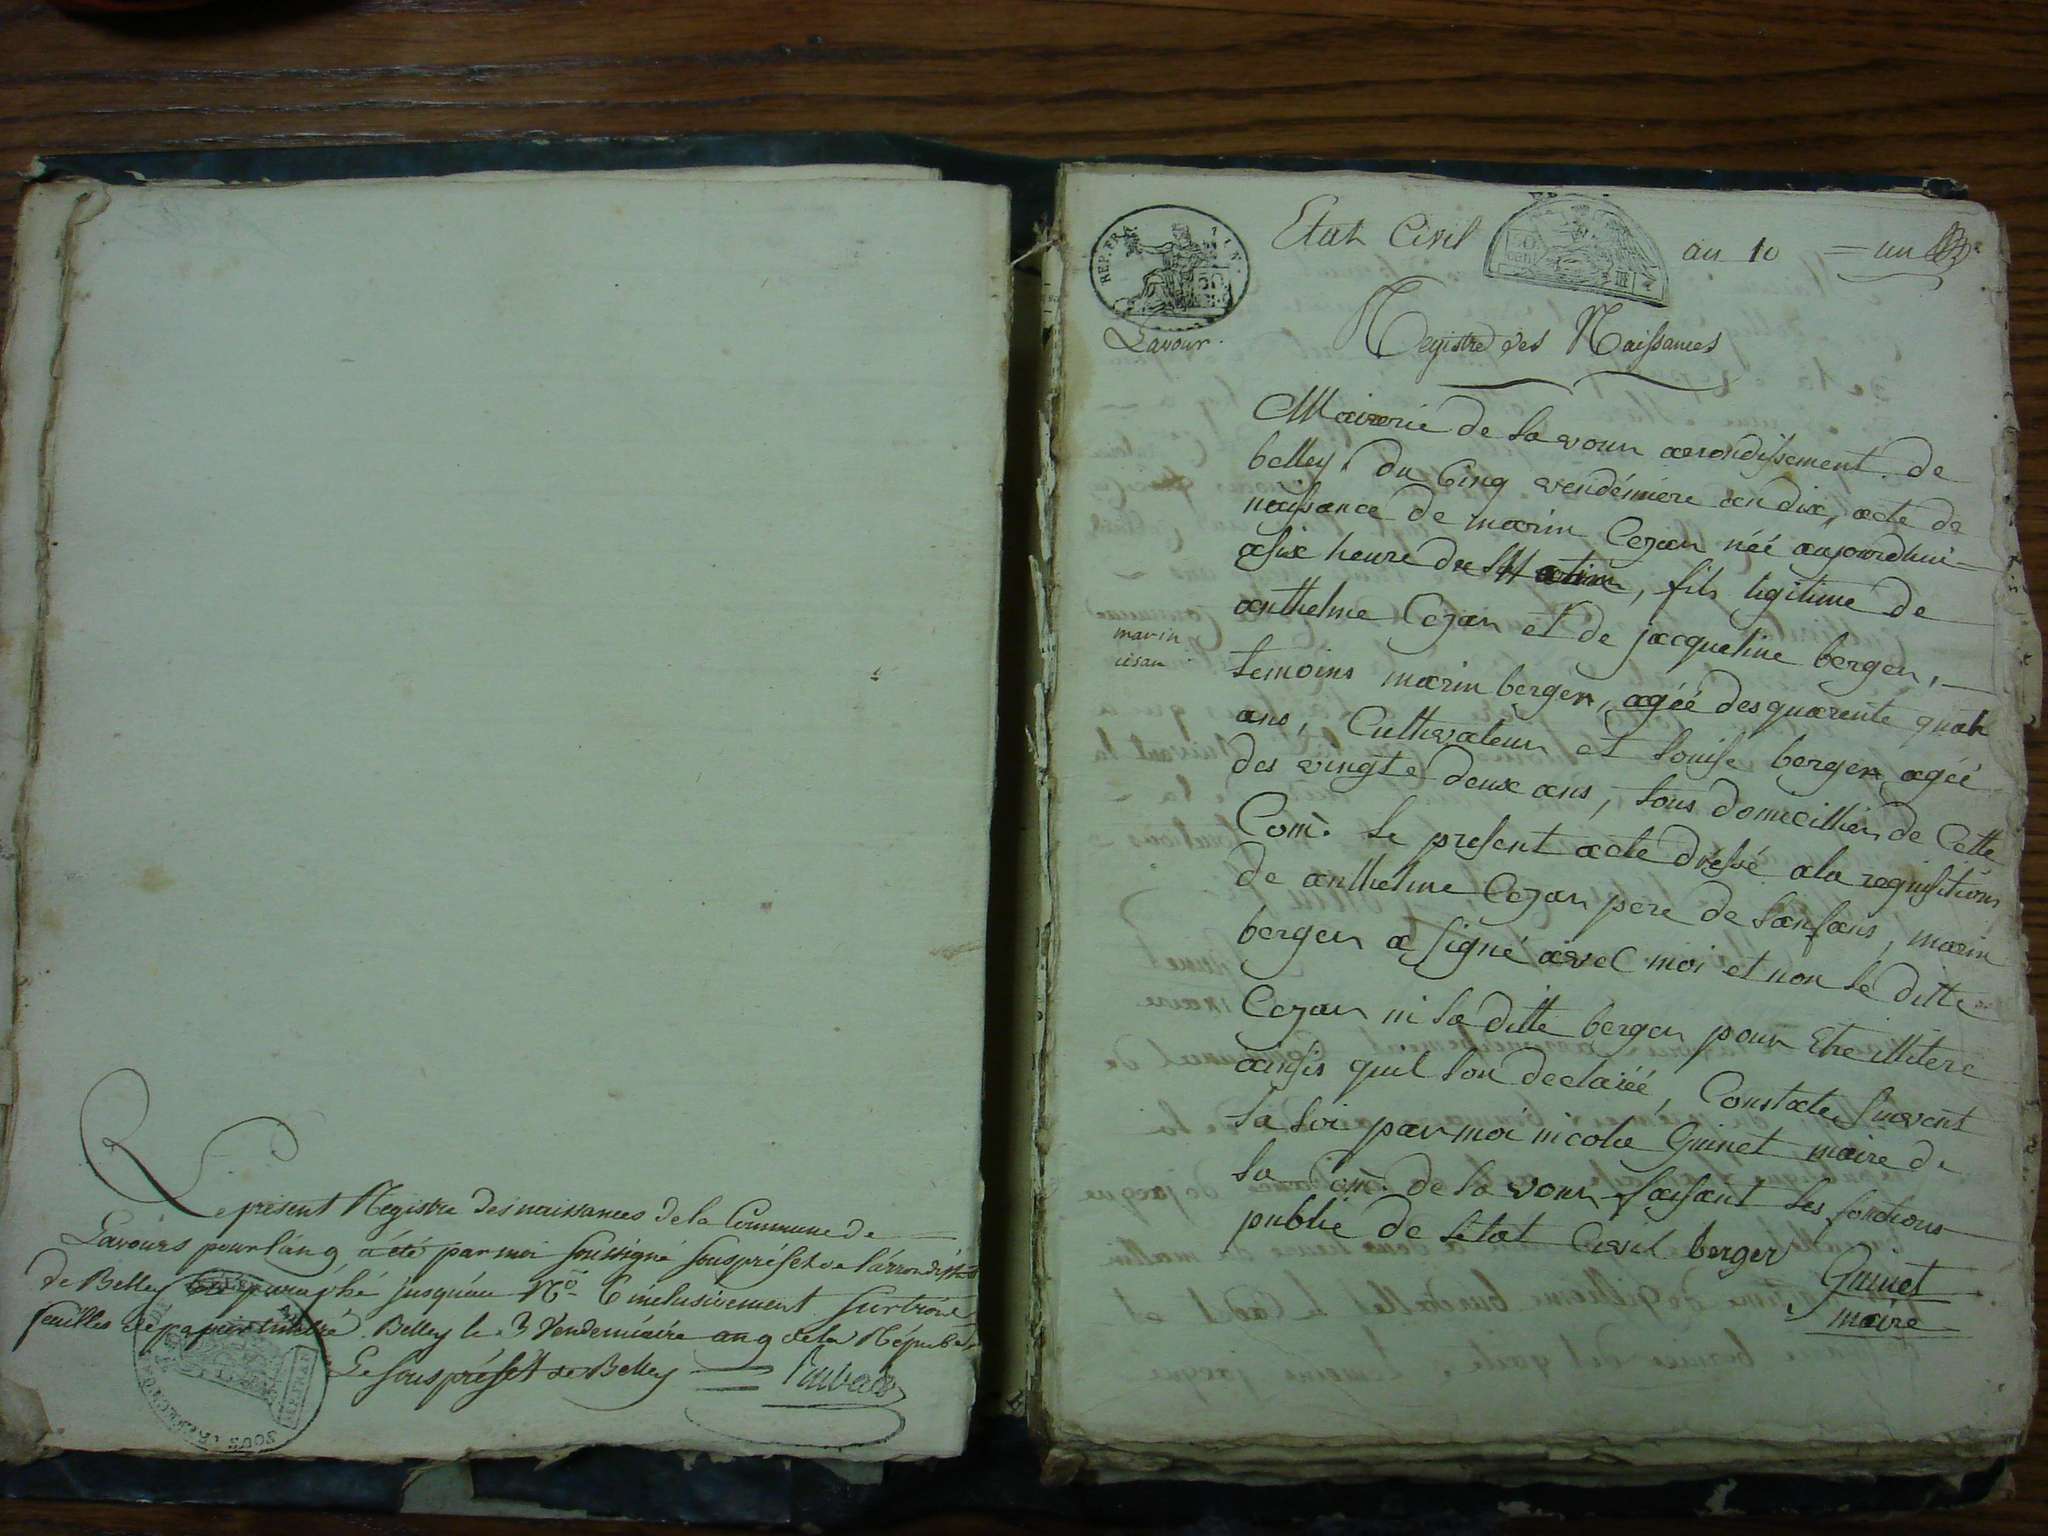 Le présent Registre des naissances de la Commune de
Lavours pour l'an 9 a été par moi soussigné sous préfet de l'arrondisst
de Belley paraphé jusqu'au No 6 inclusivement sur trois
feuilles de papier timbré. Belley le 3 Vendemiaire an 9 de la Répub.
Le sous préfet de Belley
REP. FRA.
Etat Civil
an 10
= un
Lavour.
Registre des Naissances
Mairerie de la vour arondissement de
belley. du Cinq vendémiere an dix, acte de
naissance de marin Cezan néé aujourdhui
a six heure du Matin, fils ligitime de
anthelme Cezan et de jacqueline berger,
marin
cesan
temoins marin berger, agéé des quarente quatr
ans, Cultivateur et louise berger agéé
des vingte deux ans, tous domecillier de Cette
Com. le present acte dressé a la requisition
de anthelme Cezan pere de lanfans, marin
berger a signé avec moi et non le ditte
Cezan ni la ditte berger pour Etre illitere
ainsis quil lon declaréé, Constate suivent
la loi par moi nicola Guinet maire de
la Com. de la vour faisant les fonctions
public de letat Civil berger Guinet
maire